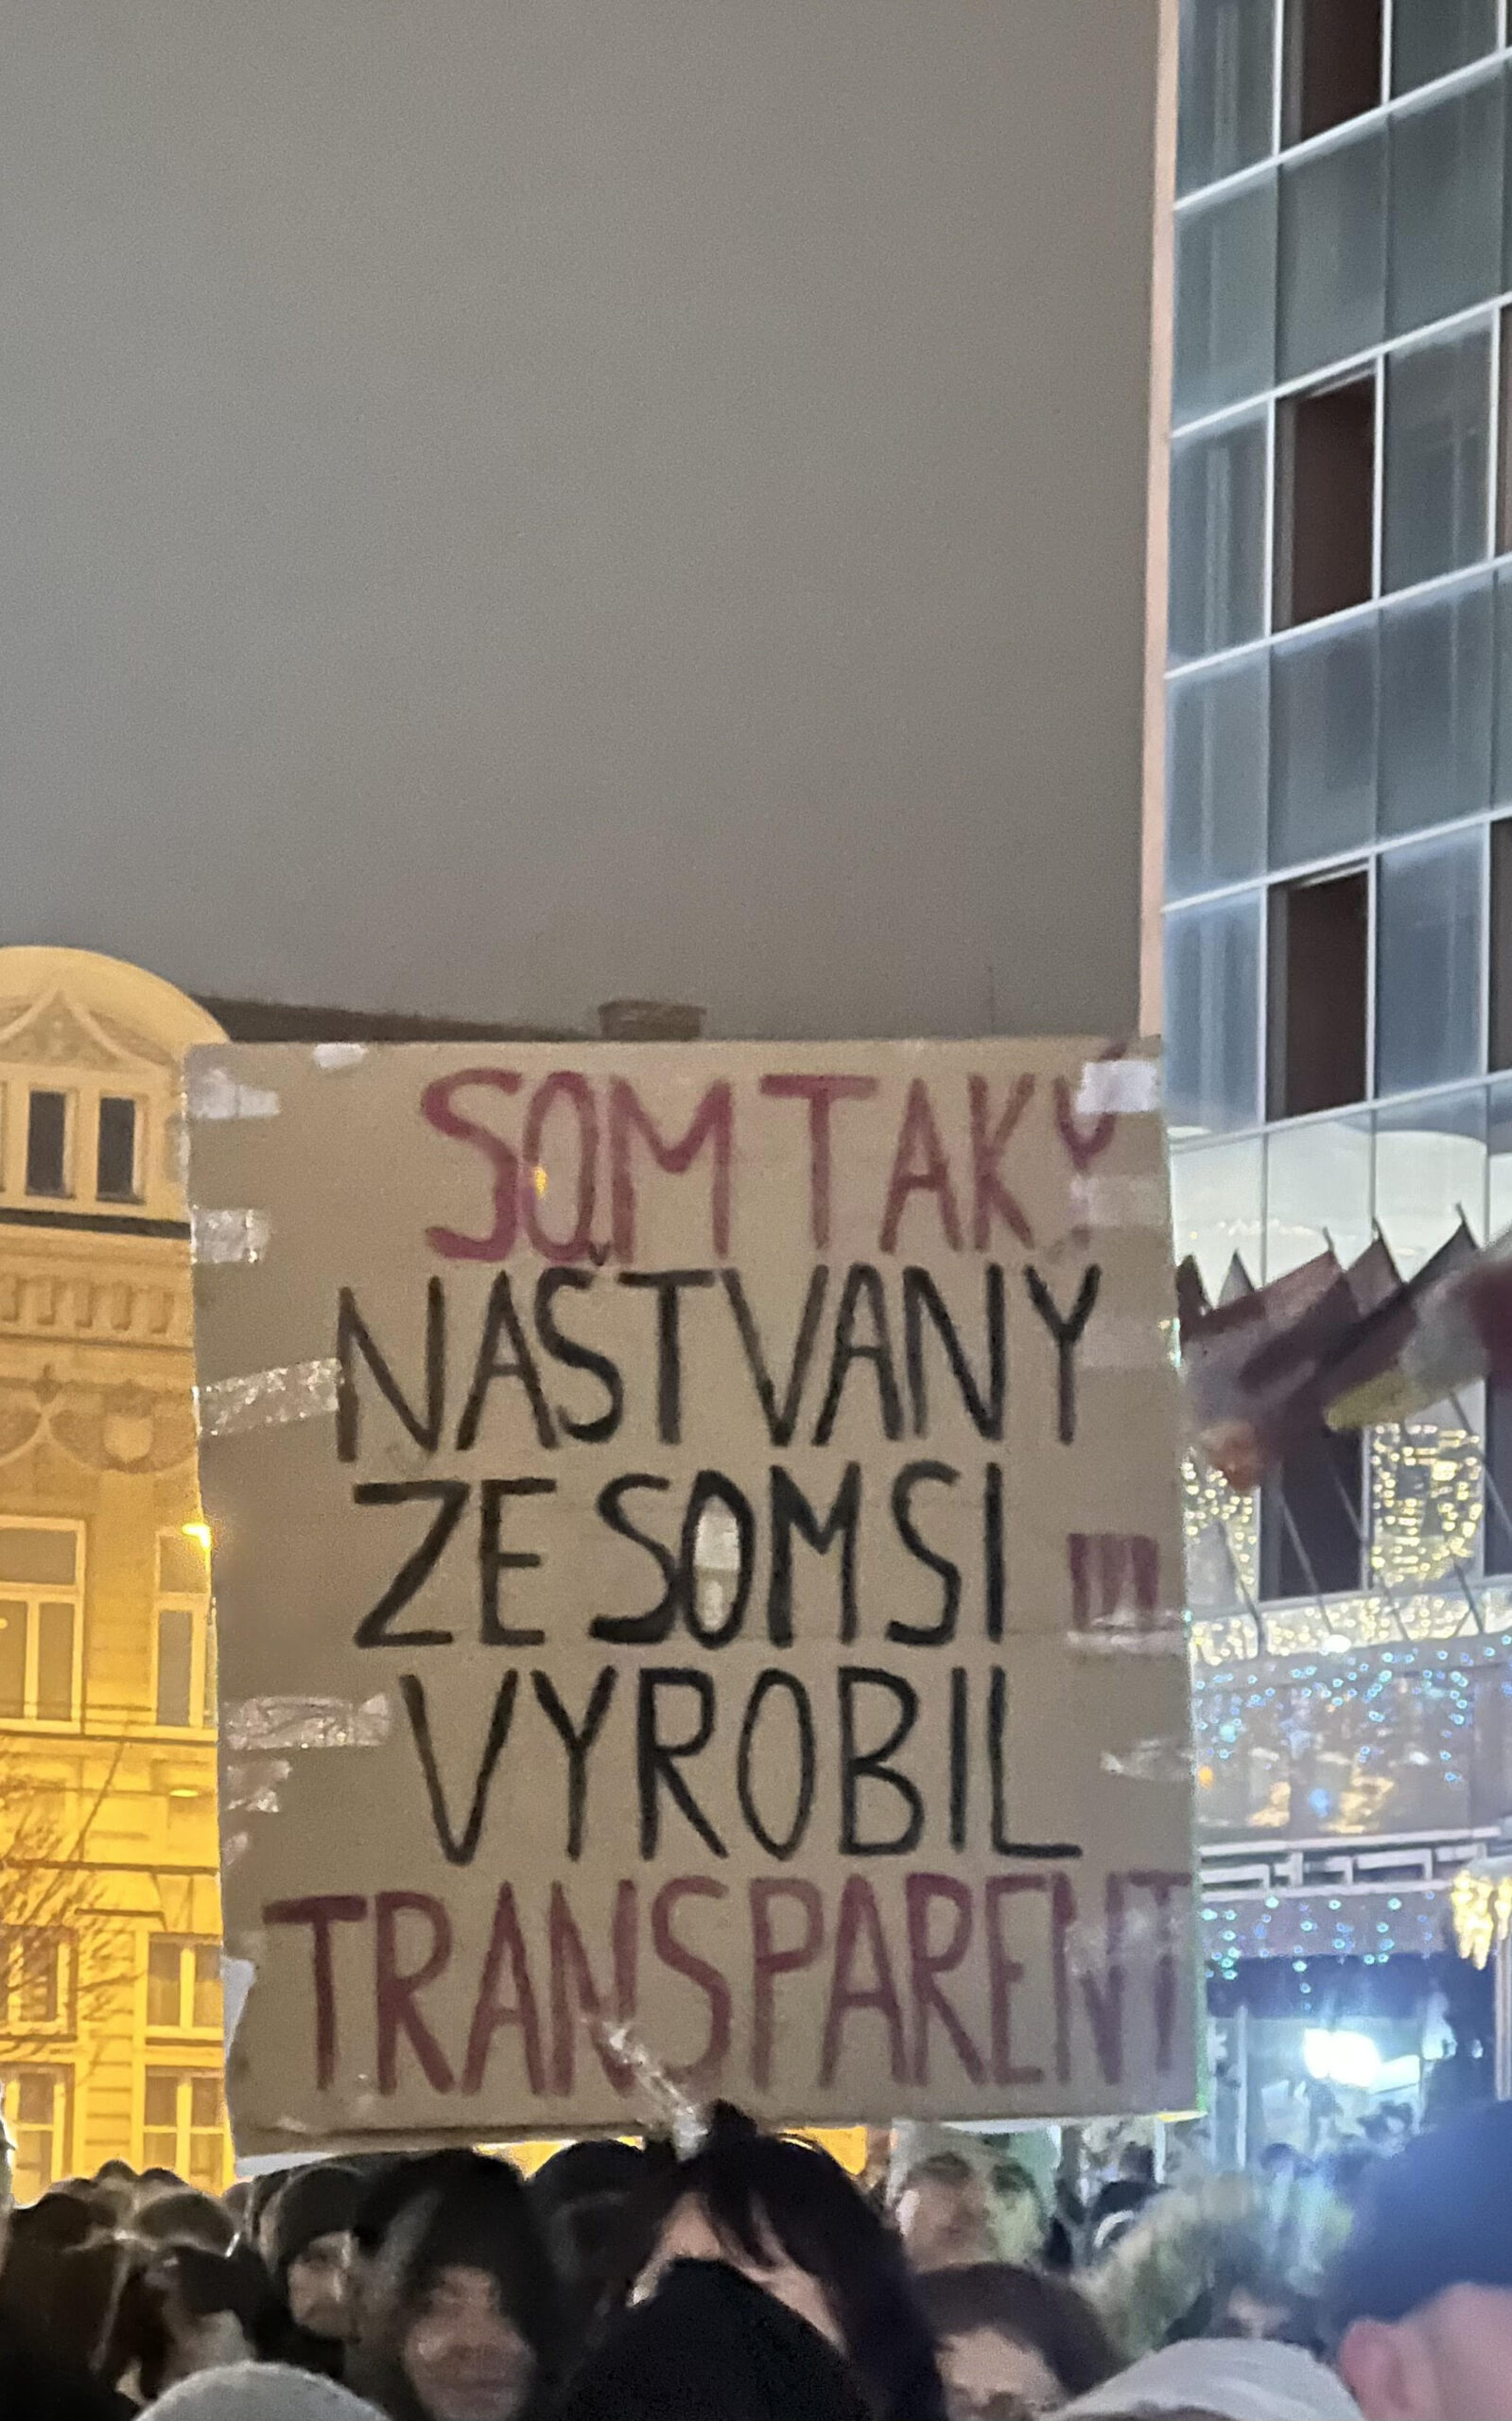 SOM TAKÝ
NAŠTVANY
ZE SOM SI !!!
VYROBIL
TRANSPARENT